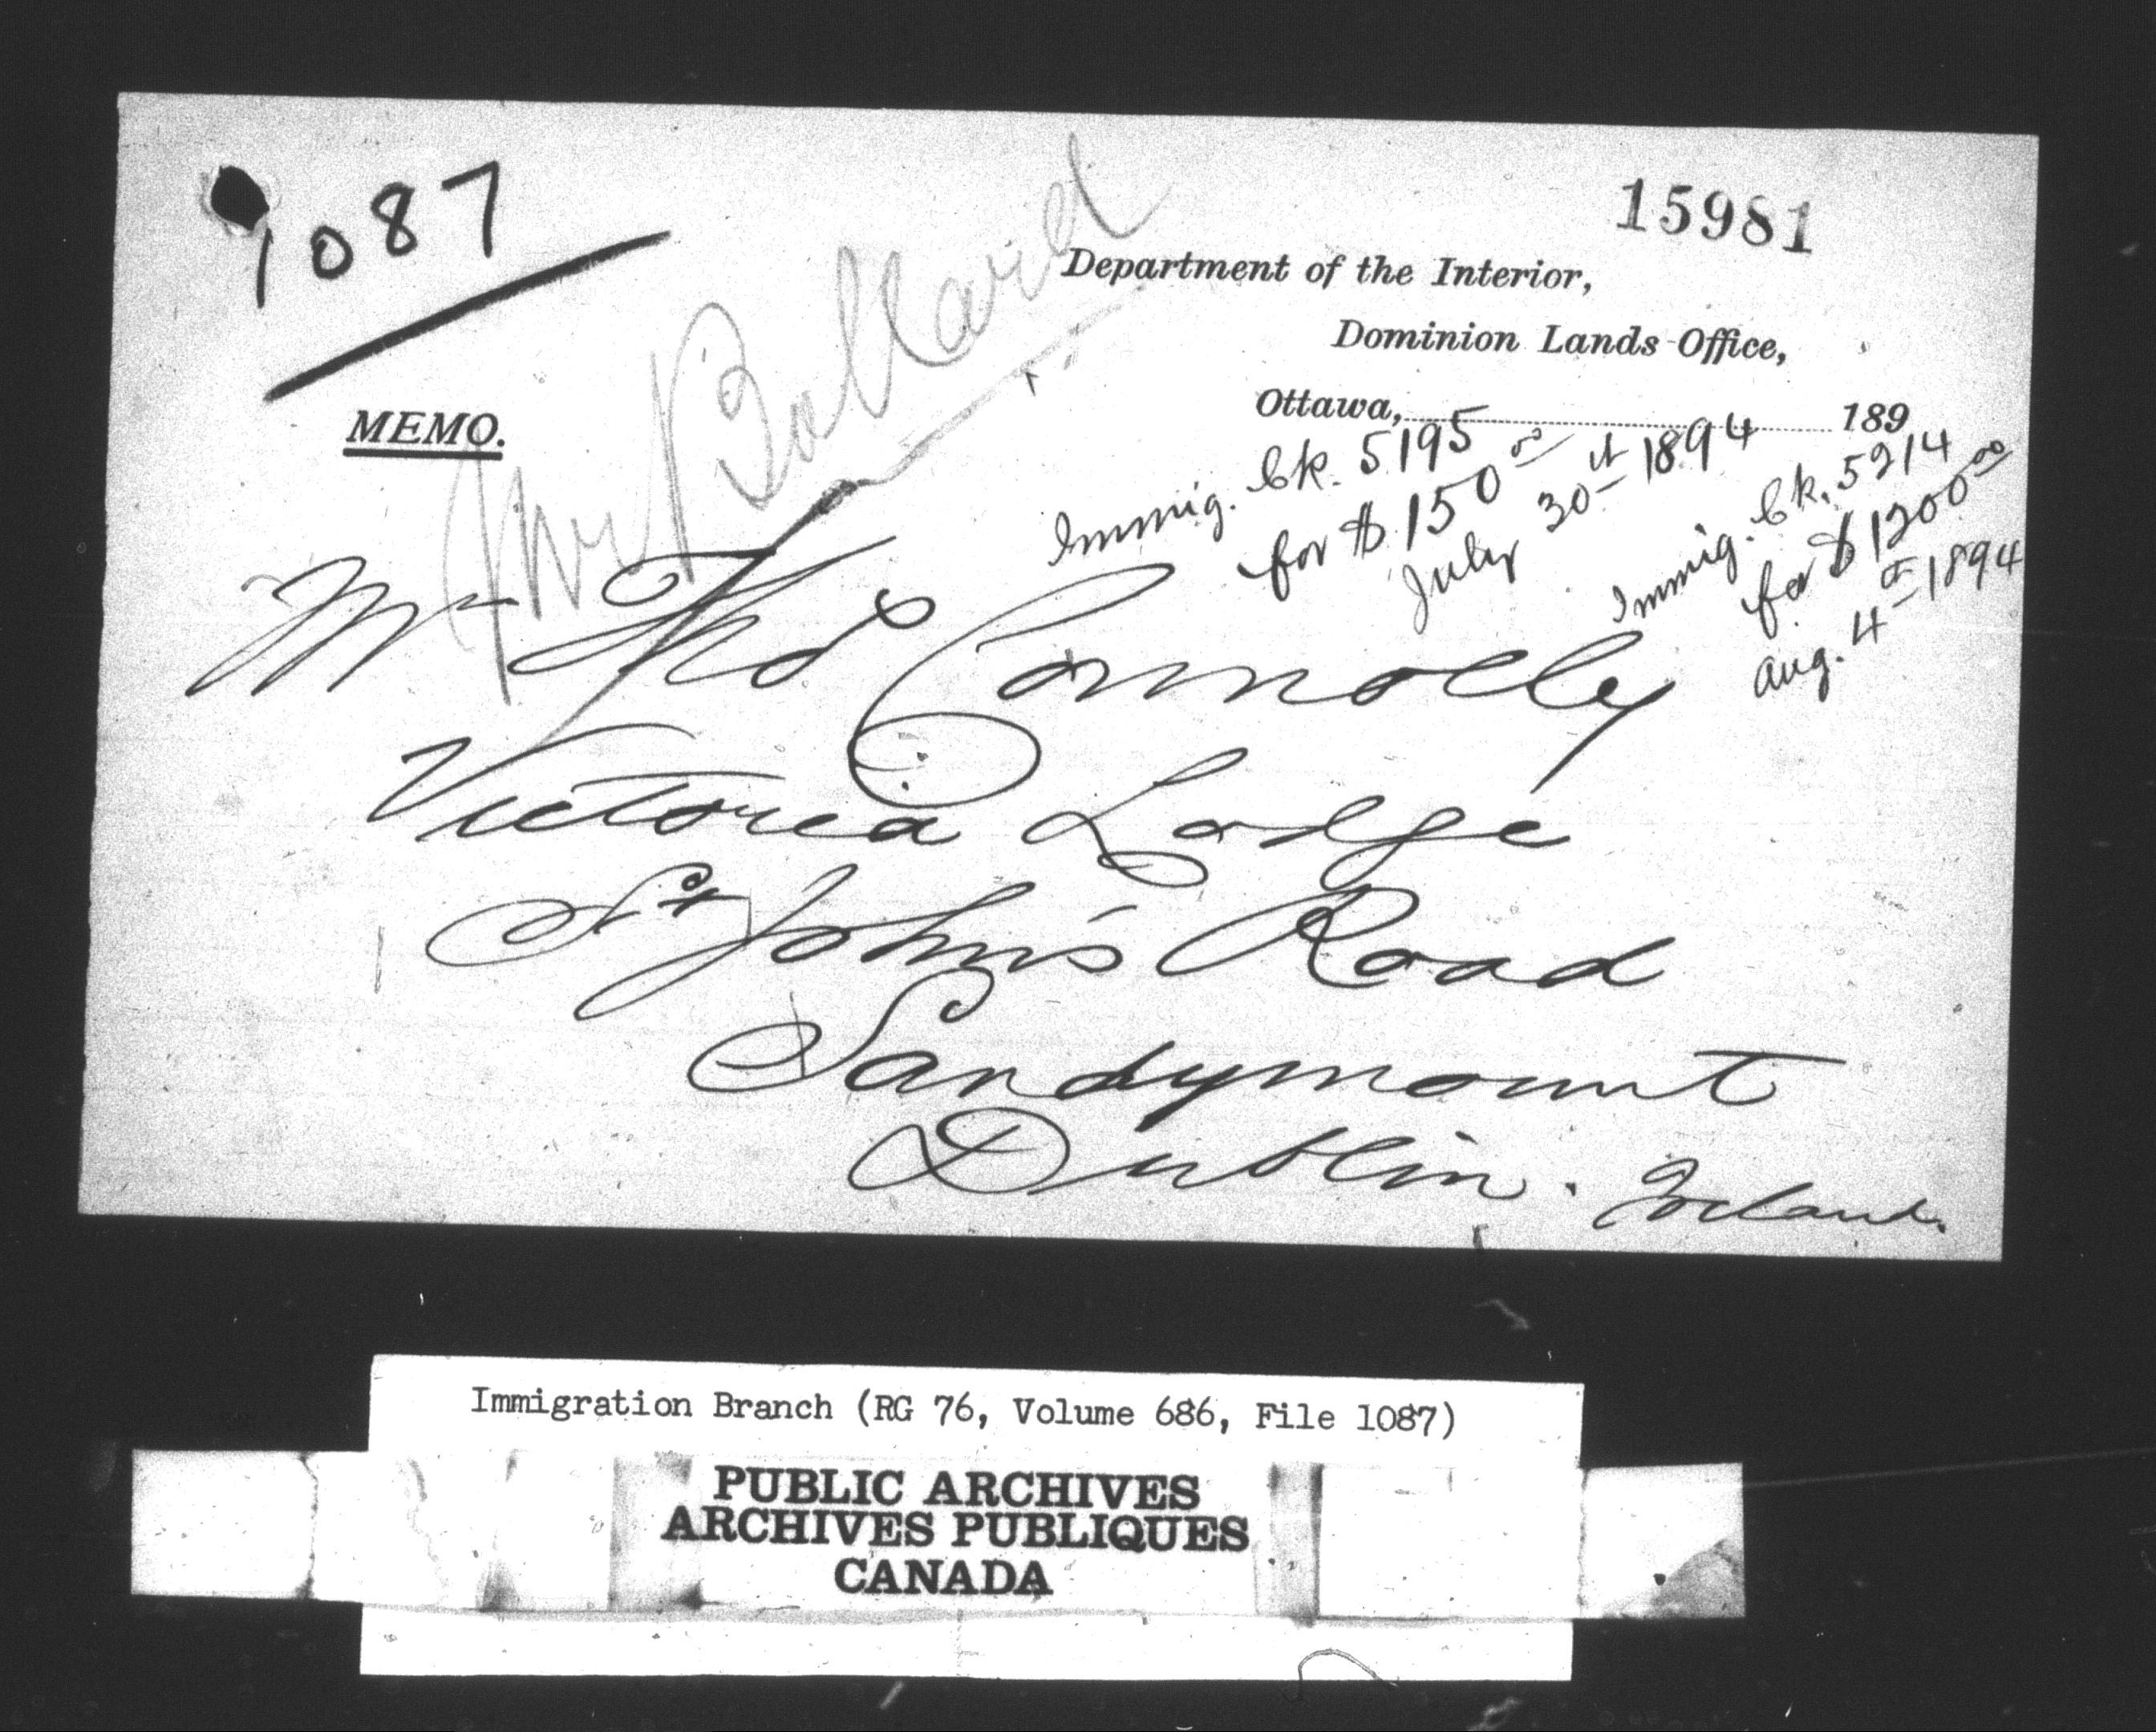 1087
15981
Department of the Interior,
Dominion Lands Office,
Ottawa, 189
MEMO.
Mr Ballard
Immig. Ck. 5195
for $150 00
July 30th 1894
Immig. Ck. 5214
for $1200 00
Aug. 4th 1894
Mr Thos Connolly
Victoria Lodge
St John's Road
Sandymount
Dublin. Ireland.
Immigration Branch (RG 76, Volume 686, File 1087)
PUBLIC ARCHIVES
ARCHIVES PUBLIQUES
CANADA